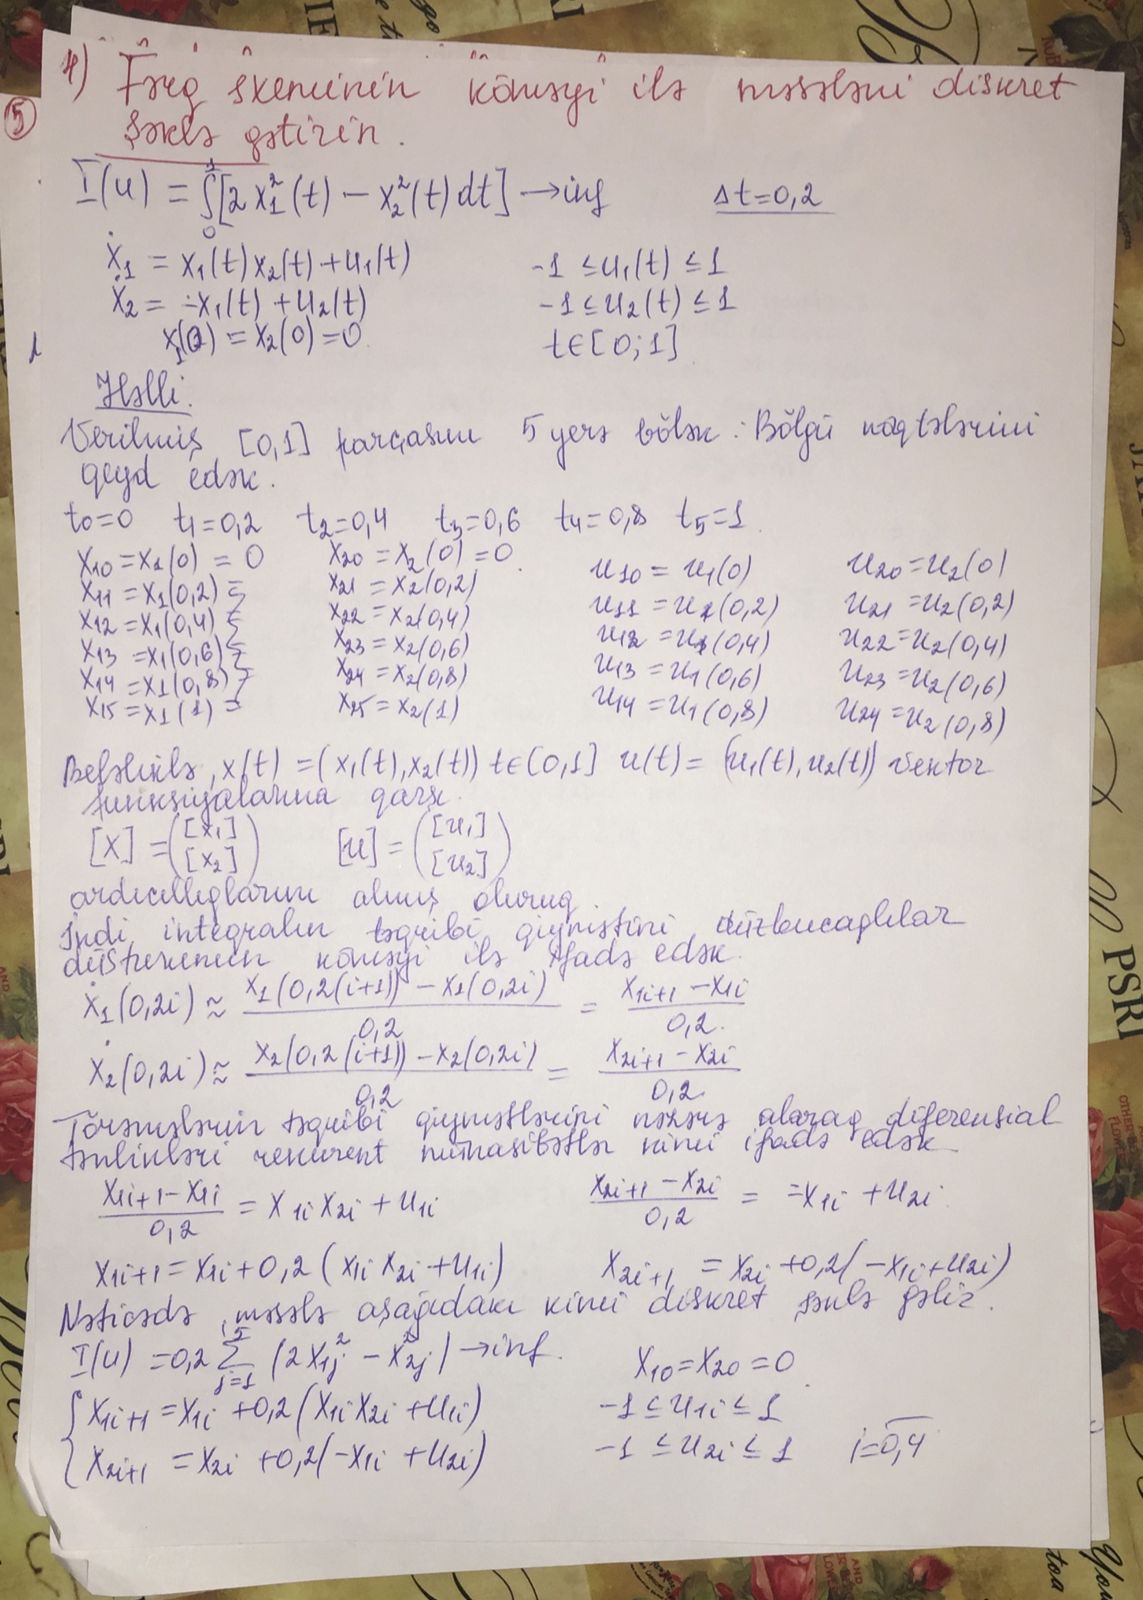 4) Fərq sxeminin köməyi ilə məsələni diskret
5
şəklə gətirin.
I(u) = ∫₀¹[2x₁²(t) − x₂²(t) dt] → inf Δt=0,2
ẋ₁ = x₁(t)x₂(t)+u₁(t) -1 ≤ u₁(t) ≤ 1
ẋ₂ = -x₁(t) + u₂(t) -1 ≤ u₂(t) ≤ 1
x₁(0) = x₂(0) = 0 t∈[0;1]
Həlli:
Verilmiş [0,1] parçasını 5 yerə bölək. Bölgü nöqtələrini
qeyd edək.
t₀=0 t₁=0,2 t₂=0,4 t₃=0,6 t₄=0,8 t₅=1
x₁₀=x₁(0) = 0 x₂₀ = x₂(0) = 0 u₁₀ = u₁(0) u₂₀=u₂(0)
x₁₁ = x₁(0,2) = x₂₁ = x₂(0,2) u₁₁ = u₁(0,2) u₂₁ = u₂(0,2)
x₁₂ = x₁(0,4) = x₂₂ = x₂(0,4) u₁₂ = u₁(0,4) u₂₂ = u₂(0,4)
x₁₃ = x₁(0,6) = x₂₃ = x₂(0,6) u₁₃ = u₁(0,6) u₂₃ = u₂(0,6)
x₁₄ = x₁(0,8) = x₂₄ = x₂(0,8) u₁₄ = u₁(0,8) u₂₄ = u₂(0,8)
x₁₅ = x₁(1) = x₂₅ = x₂(1)
Beləliklə, x(t) = (x₁(t), x₂(t)) t∈[0,1] u(t) = (u₁(t), u₂(t)) vektor
funksiyalarına qarşı
[x] = ([x₁] [x₂]) [u] = ([u₁] [u₂])
ardıcıllıqlarını almış oluruq.
İndi inteqralın təqribi qiymətini düzbucaqlılar
düsturunun köməyi ilə ifadə edək.
ẋ₁(0,2i) ≈ (x₁(0,2(i+1)) − x₁(0,2i))/0,2 = (x₁ᵢ₊₁ − x₁ᵢ)/0,2
ẋ₂(0,2i) ≈ (x₂(0,2(i+1)) − x₂(0,2i))/0,2 = (x₂ᵢ₊₁ − x₂ᵢ)/0,2
Törəmələrin təqribi qiymətlərini nəzərə alaraq diferensial
tənlikləri rekurent münasibətlər kimi ifadə edək
(x₁ᵢ₊₁ − x₁ᵢ)/0,2 = x₁ᵢ x₂ᵢ + u₁ᵢ (x₂ᵢ₊₁ − x₂ᵢ)/0,2 = -x₁ᵢ + u₂ᵢ
x₁ᵢ₊₁ = x₁ᵢ + 0,2(x₁ᵢ x₂ᵢ + u₁ᵢ) x₂ᵢ₊₁ = x₂ᵢ + 0,2(−x₁ᵢ + u₂ᵢ)
Nəticədə, məsələ aşağıdakı kimi diskret şəklə gəlir.
I(u) = 0,2 ∑ⱼ₌₁⁵ (2x₁ⱼ² − x₂ⱼ²) → inf. x₁₀ = x₂₀ = 0
{ x₁ᵢ₊₁ = x₁ᵢ + 0,2(x₁ᵢ x₂ᵢ + u₁ᵢ) -1 ≤ u₁ᵢ ≤ 1
x₂ᵢ₊₁ = x₂ᵢ + 0,2(−x₁ᵢ + u₂ᵢ) -1 ≤ u₂ᵢ ≤ 1 i=0,4
PSRI